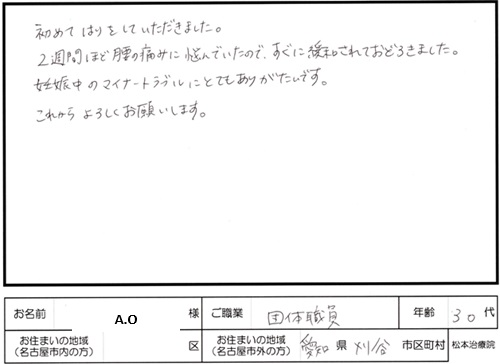 初めて はりをしていただきました。
2週間ほど腰の痛みに悩んでいたので、すぐに緩和されておどろきました。
妊娠中のマイナートラブルにとてもありがたいです。
これから よろしくお願いします。
お名前 A.O 様 ご職業 団体職員 年齢 30代
お住まいの地域 (名古屋市内の方) 区 お住まいの地域 (名古屋市外の方) 愛知県 刈谷 市区町村 松本治療院